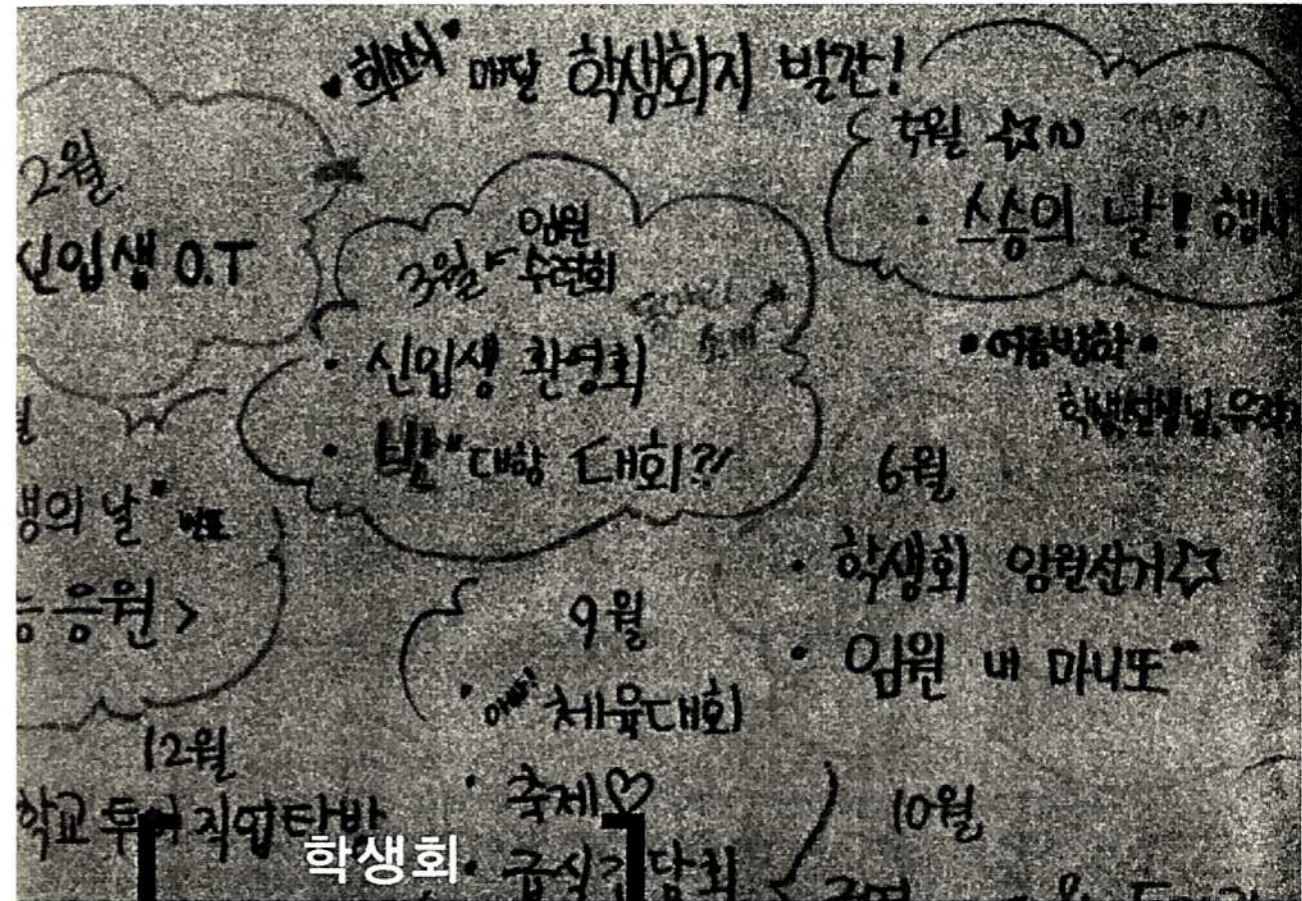 매달 학생회지 발간!
2월
신입생 O.T
3월 임원
수련회
동아리
소개
• 신입생 환영회
• 반 대항 대회?!
5월
• 스승의 날! 행사
• 여름방학 •
학생, 선생님,
6월
• 학생회 임원선거
• 임원 내 마니또
생의 날
응원 >
9월
• 체육대회
• 축제♡
• 급식간담회
12월
학교 투어 직업탐방
10월
학생회